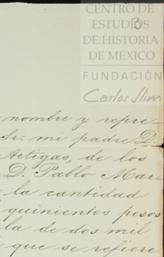 CENTRO DE
ESTUDIOS
DE HISTORIA
DE MEXICO
FUNDACIÓN
Carlos Slim
nombre y repre
Sr. mi padre D.
Artigas, de los
D. Pablo Mar
la cantidad
quinientos pesos
la de dos mil
que se refiere